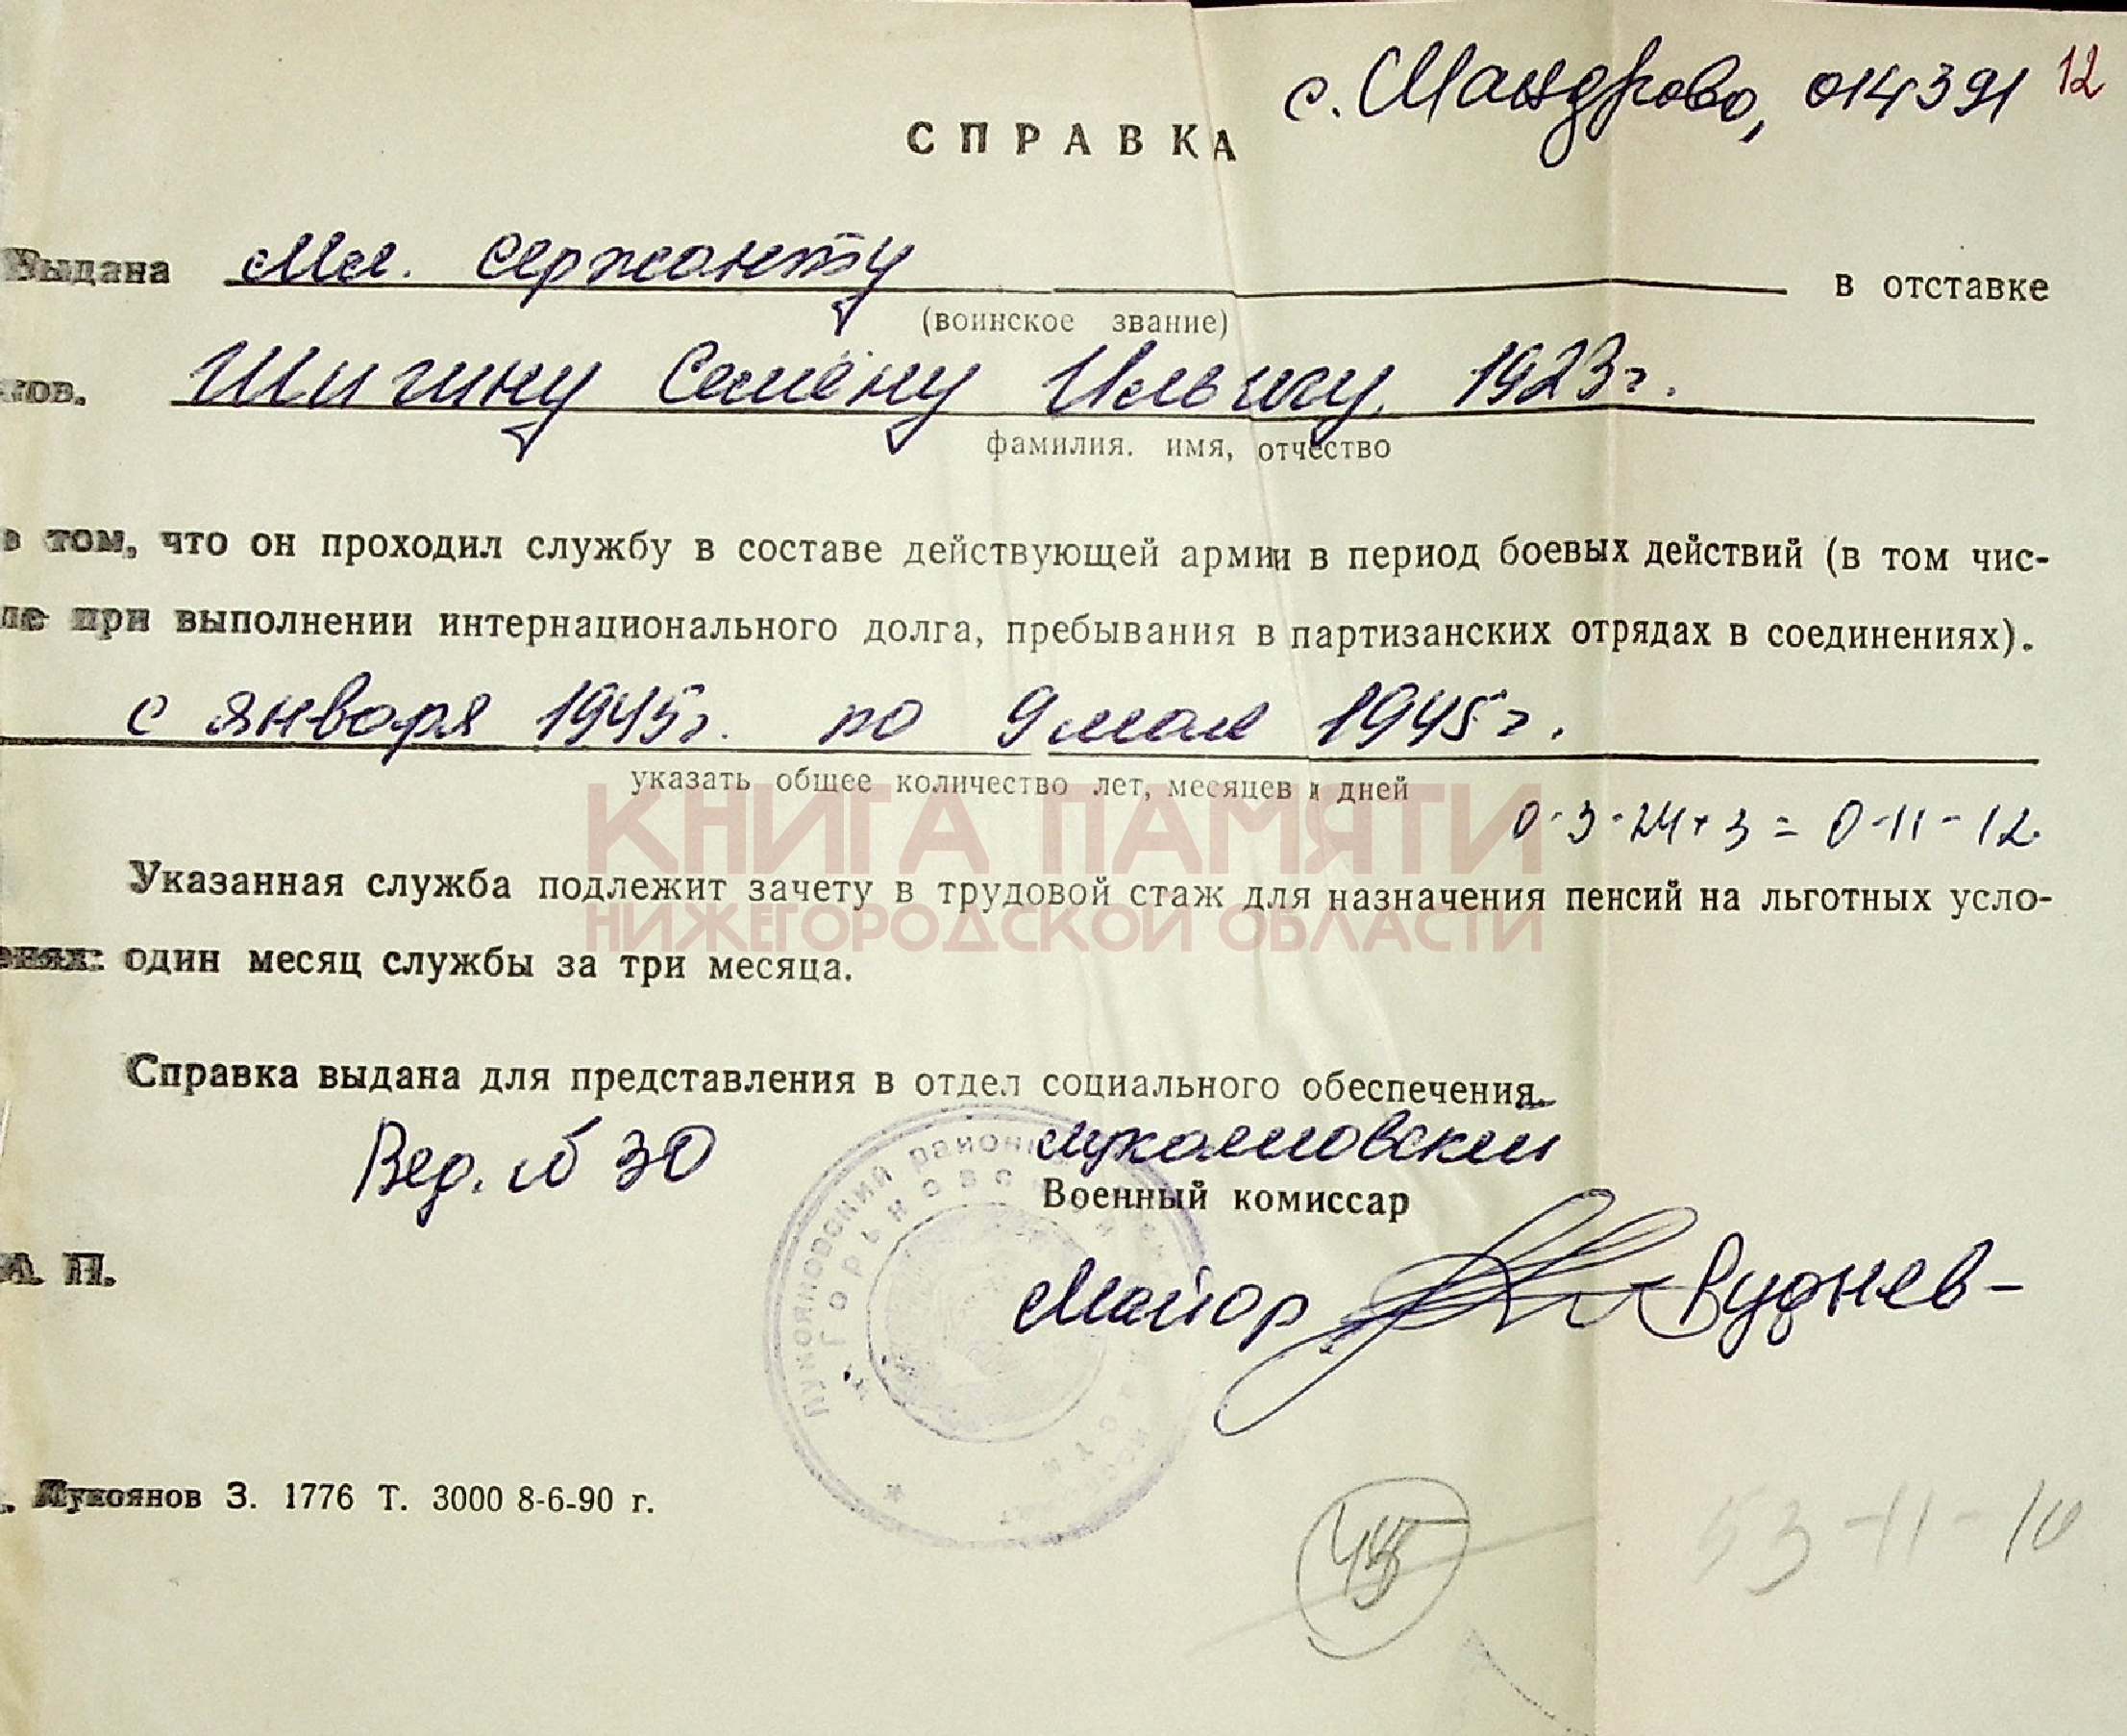 с. Мандрово, 014391 12
СПРАВКА
Выдана Мл. сержанту в отставке
(воинское звание)
тов. Шигину Семёну Ильичу, 1923г.
фамилия. имя, отчество
в том, что он проходил службу в составе действующей армии в период боевых действий (в том чис-
ле при выполнении интернационального долга, пребывания в партизанских отрядах в соединениях).
с января 1945г. по 9 мая 1945г.
указать общее количество лет, месяцев и дней
0-3-24×3 = 0-11-12
КНИГА ПАМЯТИ
Указанная служба подлежит зачету в трудовой стаж для назначения пенсий на льготных усло-
НИЖЕГОРОДСКОЙ ОБЛАСТИ
виях: один месяц службы за три месяца.
Справка выдана для представления в отдел социального обеспечения.
Вед. № 30
Лукояновский
Военный комиссар
М. П.
Майор Руднев
Лукояновский район
Горьковской
Лукоянов З. 1776 Т. 3000 8-6-90 г.
45
53-11-10